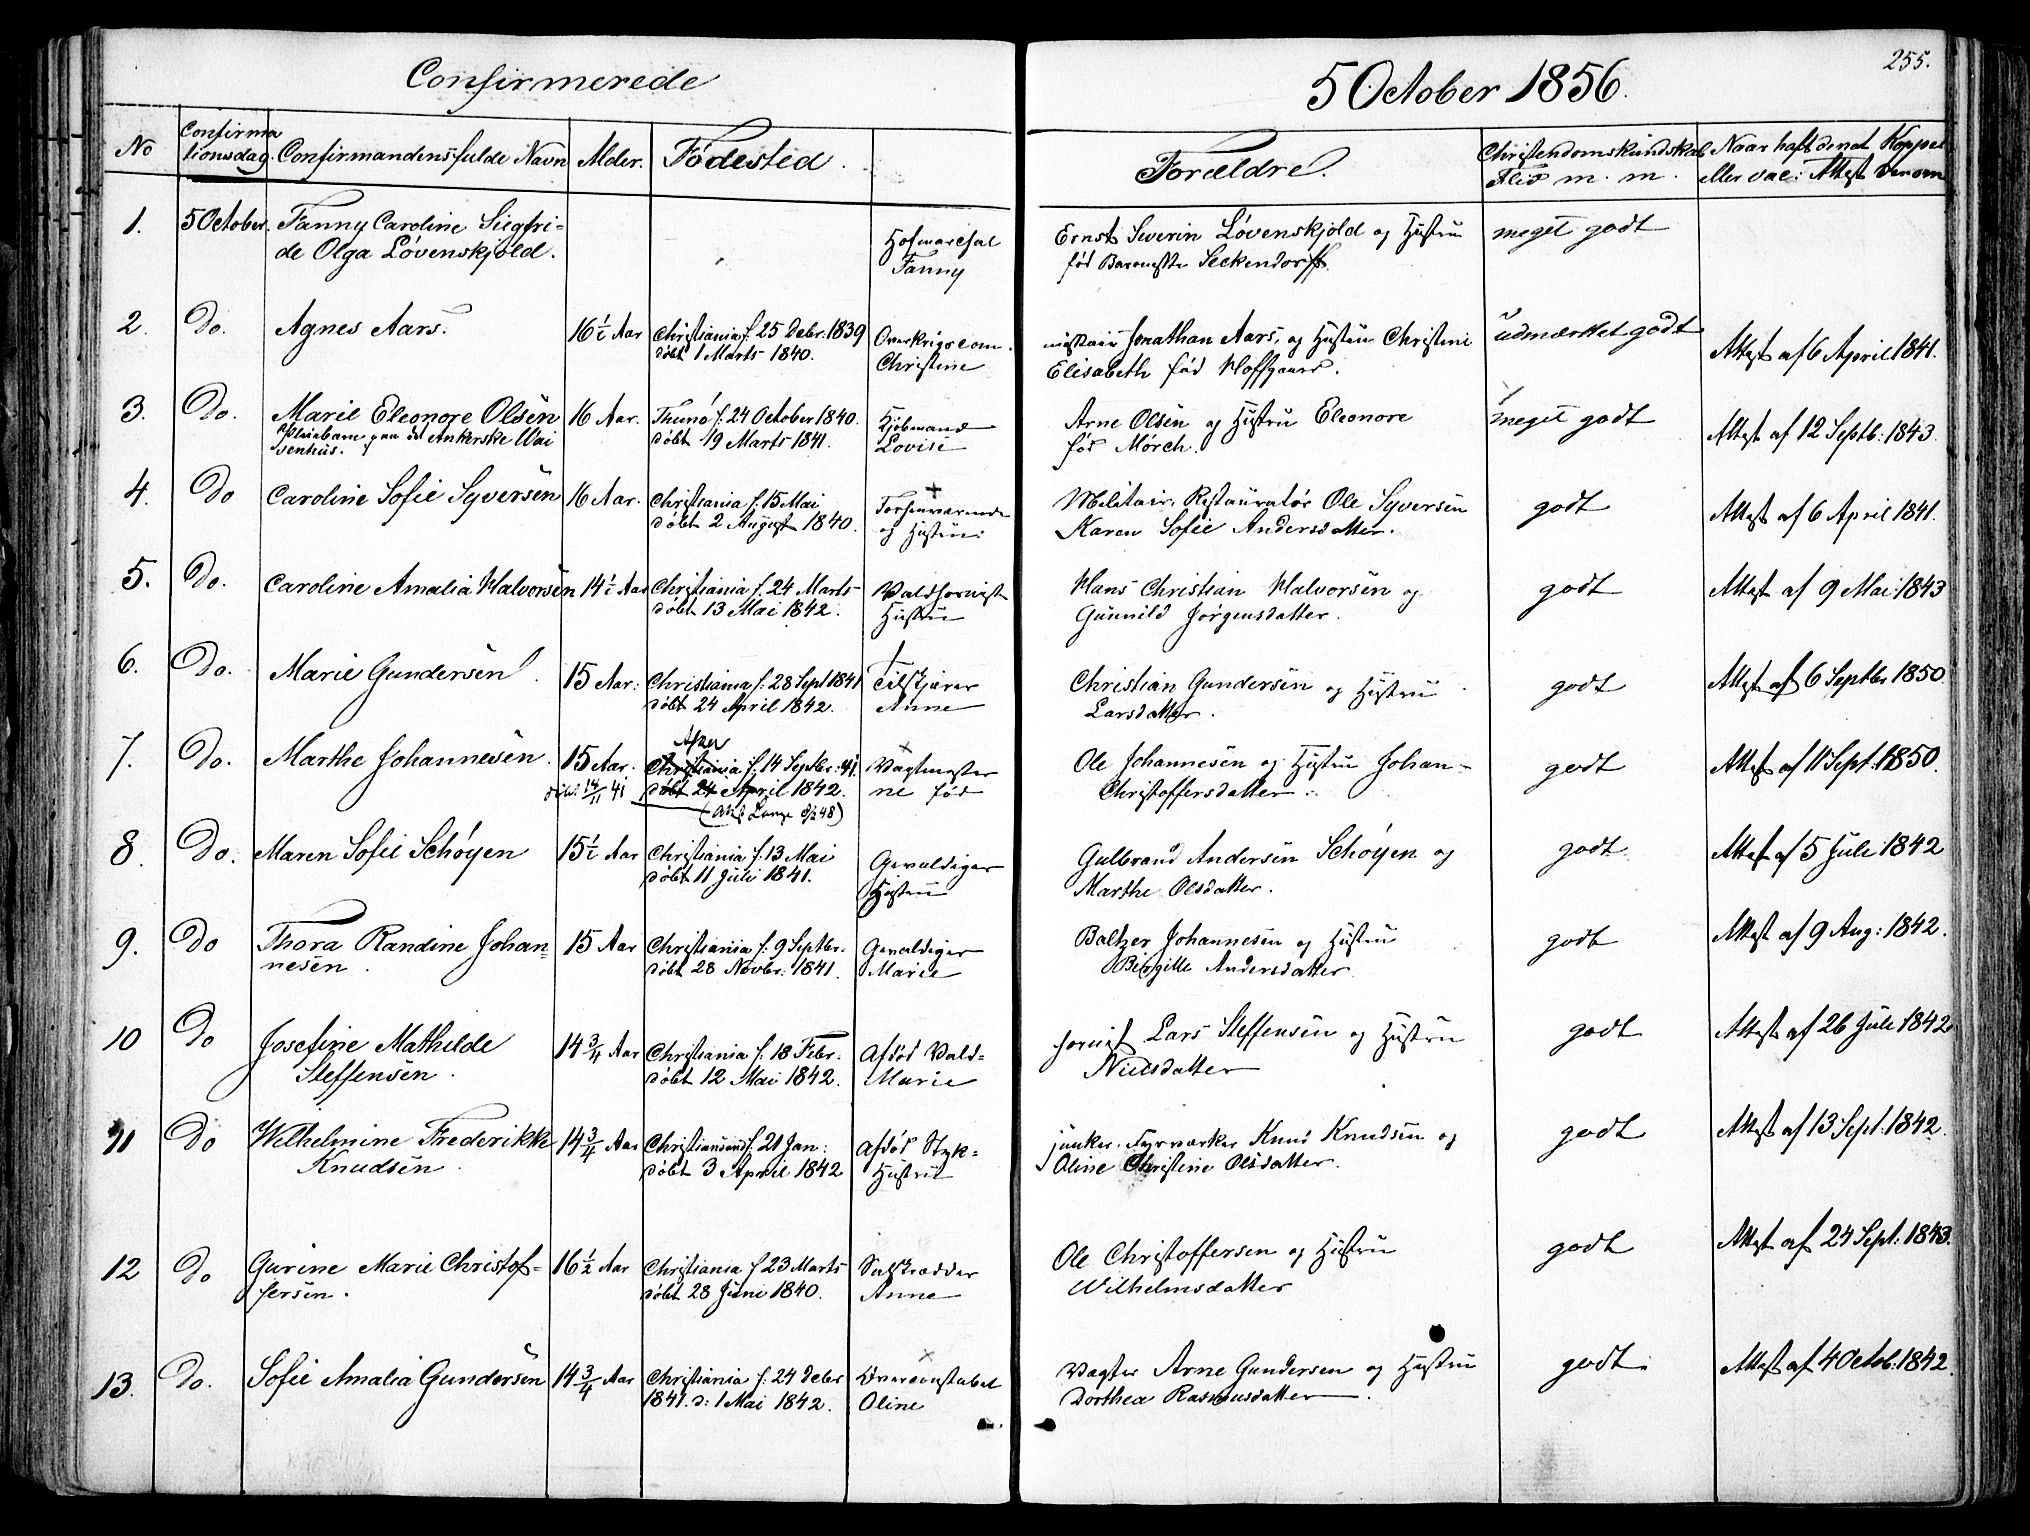 Confirmerede
5 October 1856.
255.
No
Confirma
tionsdag.
Confirmandens fulde Navn
Alder.
Födested.
Forældre.
Christendomskundskab
Flid m. m.
Naar haft de nat. Kopper
eller vac: Attest derom
1.
5 October.
Fanny Caroline Siegfri-
de Olga Lövenskjold.
Hofmarschal
Fanny
Ernst Severin Lövenskjold og Hustru
föd Baronesse Seckendorff.
meget godt
2.
Do.
Agnes Aars.
16 1/2 Aar
Christiania f. 25 Debr. 1839
döbt 1 Marts 1840.
Overkrigscom-
Christine
missair Jonathan Aars, og Hustru Christine
Elisabeth föd Hoffgaard.
udmærket godt
Attest af 6 April 1841.
3.
Do.
Marie Eleonore Olsen
Pleiebarn paa det Ankerske Wai
senhus.
16 Aar.
f. 24 October 1840.
döbt 19 Marts 1841.
Kjöbmand
Lovise
Arne Olsen og Hustru Eleonore
föd Mörch.
meget godt
Attest af 12 Septb: 1843.
4.
Do
Caroline Sofie Syversen
16 Aar.
Christiania f. 15 Mai
döbt 2 August 1840.
Forhenværende
og Hustru:
Militair. Restauratör Ole Syversen
Karen Sofie Andersdatter.
godt
Attest af 6 April 1841.
5.
Do.
Caroline Amalia Halvorsen
14 1/2 Aar
Christiania f. 24 Marts
döbt 13 Mai 1842.
Valdhornist
Hustru
Hans Christian Halvorsen og
Gunnild Jörgensdatter.
godt
Attest af 9 Mai 1843
6.
Do.
Marie Gundersen.
15 Aar.
Christiania f. 28 Sept 1841
döbt 24 April 1842.
Tilskjærer
Anne
Christian Gundersen og Hustru
Larsdatter.
godt
Attest af 6 Septbr 1850.
7.
Do.
Marthe Johannesen.
15 Aar.
döbt 14/11 41
Aker
Christiania f. 14 Septbr. 41.
döbt 24 April 1842.
Vagtmester
ne föd
Ole Johannesen og Hustru Johan-
Christoffersdatter.
godt
Attest af 11 Sept. 1850.
8.
Do.
Maren Sofie Schöyen
15 1/2 Aar
Christiania f. 13 Mai
döbt 11 Juli 1841.
Gevaldiger
Hustru
Gulbrand Andersen Schöyen og
Marthe Olsdatter.
godt
Attest af 5 Juli 1842
9.
Do
Thora Randine Johan-
nesen.
15 Aar
Christiania f. 9 Septbr.
döbt 28 Novbr. 1841.
Gevaldiger
Marie
Baltzer Johannesen og Hustru
Birgitte Andersdatter.
godt
Attest af 9 Aug: 1842.
10
Do
Josefine Mathilde
Steffensen.
14 3/4 Aar
Christiania f. 18 Febr.
döbt 12 Mai 1842.
Afdöd Vald-
Marie
hornist Lars Steffensen og Hustru
Nielsdatter
godt
Attest af 26 Juli 1842
11
Do
Wilhelmine Frederikke
Knudsen.
14 3/4 Aar
Christiansand f. 21 Jan:
döbt 3 April 1842
Afdöd Styk-
Hustru
junker. Fyrværker Knud Knudsen og
Oline Christine Olsdatter.
godt
Attest af 13 Sept. 1842.
12
Do
Gurine Marie Christof-
fersen.
16 1/2 Aar
Christiania f 23 Marts
döbt 28 Juni 1840.
Skrædder
Anne
Ole Christoffersen og Hustru
Wilhelmsdatter
godt
Attest af 24 Sept. 1843.
13.
Do.
Sofie Amalia Gundersen
14 3/4 Aar
Christiania f. 24 Debr
1841. d: 1 Mai 1842.
Overconstabel
Oline
Vagter Arne Gundersen og Hustru
Dorthea Rasmusdatter.
godt.
Attest af 4 Octob. 1842.